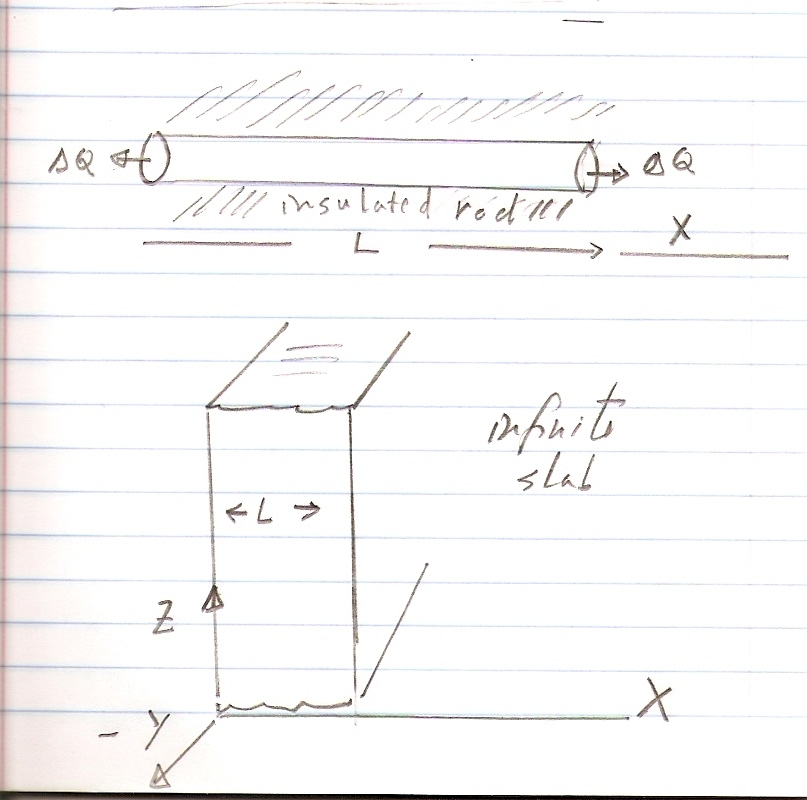 ΔQ ΔQ
insulated rod
L X
infinite
slab
L
Z
X
- Y